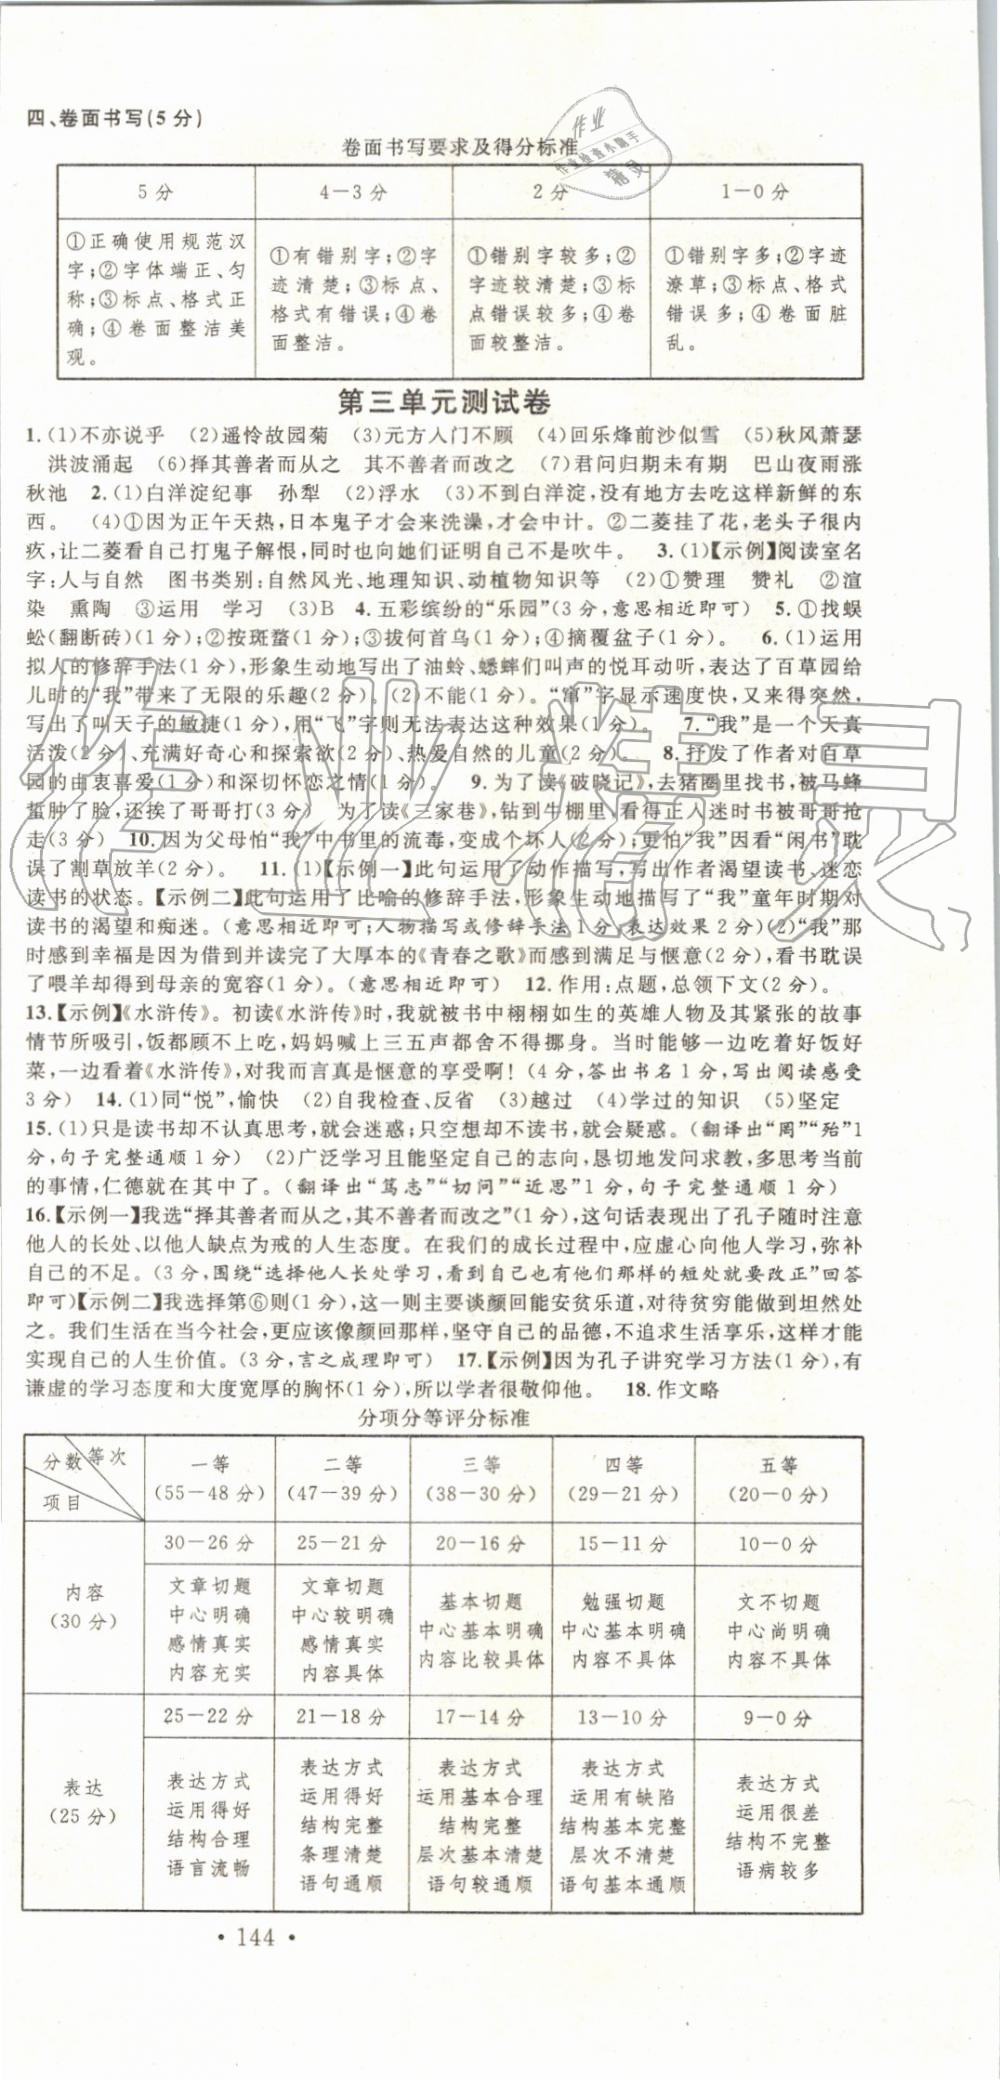 四、卷面书写(5分)
卷面书写要求及得分标准
5分 4－3分 2分 1－0分
①正确使用规范汉字;②字体端正、匀称;③标点、格式正确;④卷面整洁美观。
①有错别字;②字迹清楚;③标点、格式有错误;④卷面整洁。
①错别字较多;②字迹较清楚;③标点错误较多;④卷面较整洁。
①错别字多;②字迹潦草;③标点、格式错误多;④卷面脏乱。
第三单元测试卷
1.(1)不亦说乎 (2)遥怜故园菊 (3)元方入门不顾 (4)回乐烽前沙似雪 (5)秋风萧瑟
洪波涌起 (6)择其善者而从之 其不善者而改之 (7)君问归期未有期 巴山夜雨涨
秋池 2.(1)白洋淀纪事 孙犁 (2)浮水 (3)不到白洋淀,没有地方去吃这样新鲜的东
西。 (4)①因为正午天热,日本鬼子才会来洗澡,才会中计。②二菱挂了花,老头子很内
疚,让二菱看自己打鬼子解恨,同时也向她们证明自己不是吹牛。 3.(1)【示例】阅读室名
字:人与自然 图书类别:自然风光、地理知识、动植物知识等 (2)①赞理 赞礼 ②渲
染 熏陶 ③运用 学习 (3)B 4.五彩缤纷的“乐园”(3分,意思相近即可) 5.①找蜈
蚣(翻断砖)(1分);②按斑蝥(1分);③拔何首乌(1分);④摘覆盆子(1分)。 6.(1)运用
拟人的修辞手法(1分),形象生动地写出了油蛉、蟋蟀们叫声的悦耳动听,表达了百草园给
儿时的“我”带来了无限的乐趣(2分) (2)不能(1分)。“窜”字显示速度快,又来得突然,
写出了叫天子的敏捷(1分),用“飞”字则无法表达这种效果(1分)。 7.“我”是一个天真
活泼(2分)、充满好奇心和探索欲(2分)、热爱自然的儿童(2分)。 8.抒发了作者对百草
园的由衷喜爱(1分)和深切怀恋之情(1分)。 9.为了读《破晓记》,去猪圈里找书,被马蜂
蜇肿了脸,还挨了哥哥打(3分) 为了读《三家巷》,钻到牛棚里,看得正入迷时书被哥哥抢
走(3分) 10.因为父母怕“我”中书里的流毒,变成个坏人(2分);更怕“我”因看“闲书”耽
误了割草放羊(2分)。 11.(1)【示例一】此句运用了动作描写,写出作者渴望读书、迷恋
读书的状态。【示例二】此句运用了比喻的修辞手法,形象生动地描写了“我”童年时期对
读书的渴望和痴迷。(意思相近即可;人物描写或修辞手法1分,表达效果2分)(2)“我”那
时感到幸福是因为借到并读完了大厚本的《青春之歌》而感到满足与惬意(2分),看书耽误
了喂羊却得到母亲的宽容(1分)。(意思相近即可) 12.作用:点题,总领下文(2分)。
13.【示例】《水浒传》。初读《水浒传》时,我就被书中栩栩如生的英雄人物及其紧张的故事
情节所吸引,饭都顾不上吃,妈妈喊上三五声都舍不得挪身。当时能够一边吃着好饭好
菜,一边看着《水浒传》,对我而言真是惬意的享受啊!(4分,答出书名1分,写出阅读感受
3分) 14.(1)同“悦”,愉快 (2)自我检查、反省 (3)越过 (4)学过的知识 (5)坚定
15.(1)只是读书却不认真思考,就会迷惑;只空想却不读书,就会疑惑。(翻译出“罔”“殆”1
分,句子完整通顺1分) (2)广泛学习且能坚定自己的志向,恳切地发问求教,多思考当前
的事情,仁德就在其中了。(翻译出“笃志”“切问”“近思”1分,句子完整通顺1分)
16.【示例一】我选“择其善者而从之,其不善者而改之”(1分),这句话表现出了孔子随时注意
他人的长处、以他人缺点为戒的人生态度。在我们的成长过程中,应虚心向他人学习,弥补
自己的不足。(3分,围绕“选择他人长处学习,看到自己也有他们那样的短处就要改正”回答
即可)【示例二】我选择第⑥则(1分),这一则主要谈颜回能安贫乐道,对待贫穷能做到坦然处
之。我们生活在当今社会,更应该像颜回那样,坚守自己的品德,不追求生活享乐,这样才能
实现自己的人生价值。(3分,言之成理即可) 17.【示例】因为孔子讲究学习方法(1分),有
谦虚的学习态度和大度宽厚的胸怀(1分),所以学者很敬仰他。 18.作文略
分项分等评分标准
分数 等次 项目
一等(55－48分) 二等(47－39分) 三等(38－30分) 四等(29－21分) 五等(20－0分)
内容(30分)
30－26分 25－21分 20－16分 15－11分 10－0分
文章切题 中心明确 感情真实 内容充实
文章切题 中心较明确 感情真实 内容具体
基本切题 中心基本明确 内容比较具体
勉强切题 中心基本明确 内容不具体
文不切题 中心尚明确 内容不具体
表达(25分)
25－22分 21－18分 17－14分 13－10分 9－0分
表达方式 运用得好 结构合理 语言流畅
表达方式 运用得好 结构完整 条理清楚 语句通顺
表达方式 运用基本合理 结构完整 层次基本清楚 语句较通顺
表达方式 运用有缺陷 结构基本完整 层次不清楚 语句基本通顺
表达方式 运用很差 结构不完整 语病较多
• 144 •
作业
作业检查小助手
精灵
作业精灵